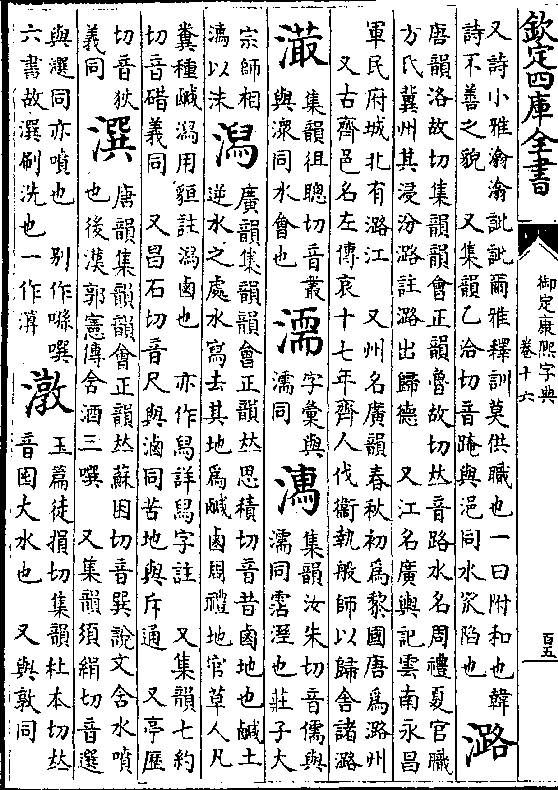 欽定四庫全書
御定康熙字典
卷十六
百五
又詩小雅潝潝訿訿爾雅釋訓莫供職也一曰附和也韓
詩不善之貌 又集韻乙洽切音𨅓與浥同水䆗陷也 潞
唐韻洛故切集韻韻會正韻魯故切𠀤音路水名周禮夏官職
方氏冀州其浸汾潞註潞出歸德 又江名廣輿記雲南永昌
軍民府城北有潞江 又州名廣韻春秋初爲黎國唐爲潞州
又古齊邑名左傳哀十七年齊人伐衞執般師以歸舍諸潞
潨 集韻徂聰切音叢與潀同水會也 濡 字彙與濡同 集韻汝朱切音儒與濡同霑溼也莊子大
宗師相濡以沫 潟 廣韻集韻韻會正韻𠀤思積切音昔鹵地也鹹土逆水之處水寫去其地爲鹹鹵周禮地官草人凡
糞種鹹潟用貆註潟鹵也 亦作舄詳舄字註 又集韻七約
切音碏義同 又昌石切音尺與滷同苦地與斥通 又亭歷
切音狄義同 潠 唐韻集韻韻會正韻𠀤蘇困切音巽說文含水噴也後漢郭憲傳含酒三噀 又集韻須絹切音選
與選同亦噴也 别作噝噀六書故潠刷洗也一作潠 潡 玉篇徒損切集韻杜本切𠀤音囤大水也 又與敦同